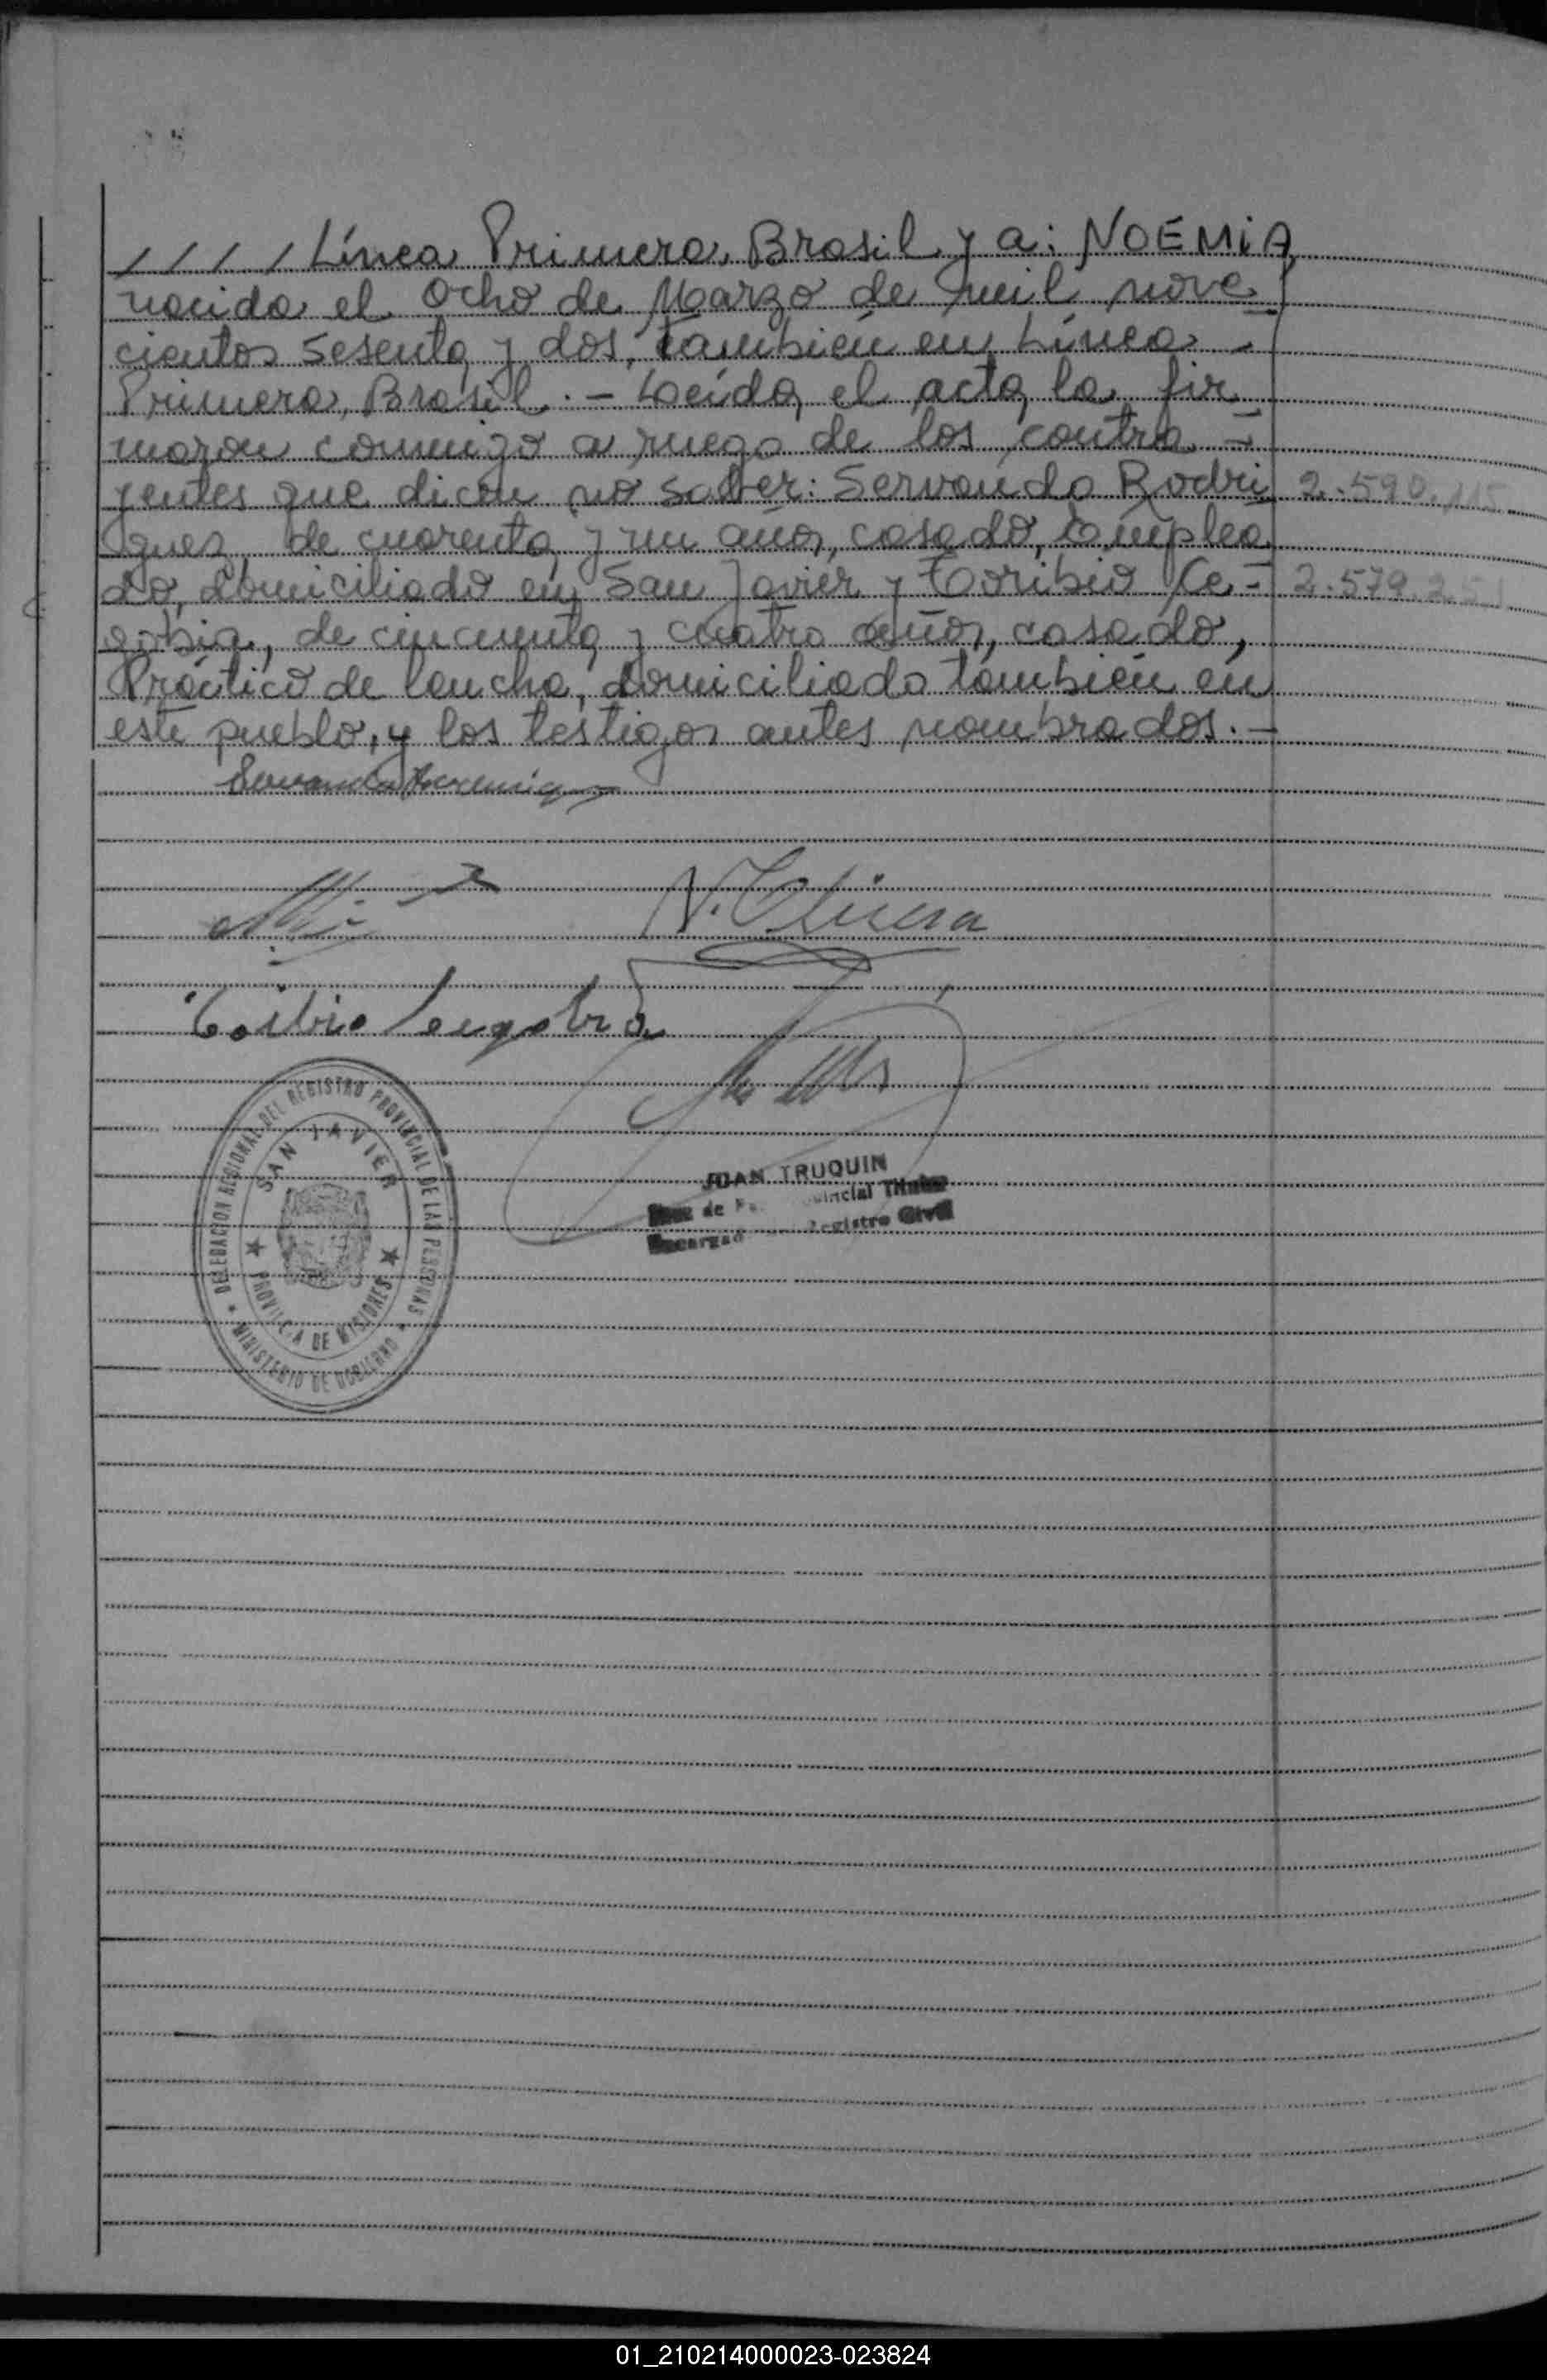 //// Línea Primera, Brasil y a: NOEMIA,
nacida el Ocho de Marzo de mil nove
cientos sesenta y dos, también en Línea -
Primera, Brasil. - Leída el acta la fir
maron conmigo a ruego de los contra -
yentes que dicen no saber: Servando Rodri 2.590.115
guez, de cuarenta y un años, casado, Emplea
do, domiciliado en San Javier y Toribio Le - 2.579.251
gobia, de cincuenta y cuatro años, casado,
Práctico de lancha, domiciliado también en
este pueblo, y los testigos antes nombrados. -
JUAN TRUQUIN
Juez de Provincial Titular
Encargado Registro Civil
DELEGACION REGIONAL DEL REGISTRO PROVINCIAL DE LAS PERSONAS
SAN JAVIER
PROVINCIA DE MISIONES
MINISTERIO DE GOBIERNO
01_210214000023-023824